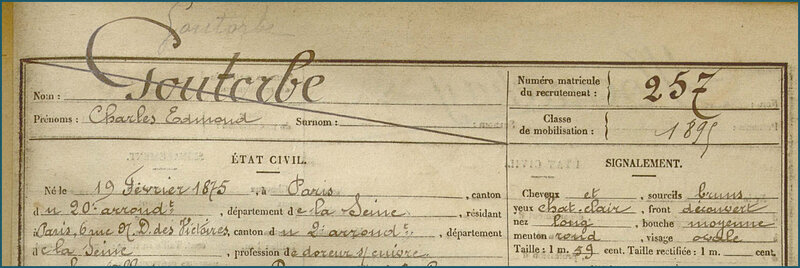 Goutorbe
Nom: Goutorbe
Prénoms: Charles Edmond Surnom:
Numéro matricule du recrutement: 257
Classe de mobilisation: 1895
ÉTAT CIVIL.
Né le 19 Février 1875, à Paris, canton
du 20e arrondt, département de la Seine, résidant
à Paris, 6 rue N.D. des Victoires, canton du 2e arrondt, département
de la Seine, profession de doreur s/ cuivre
SIGNALEMENT.
Cheveux et sourcils bruns
yeux chat. clair, front découvert
nez long, bouche moyenne
menton rond, visage ovale
Taille: 1 m. 59 cent. Taille rectifiée: 1 m. cent.